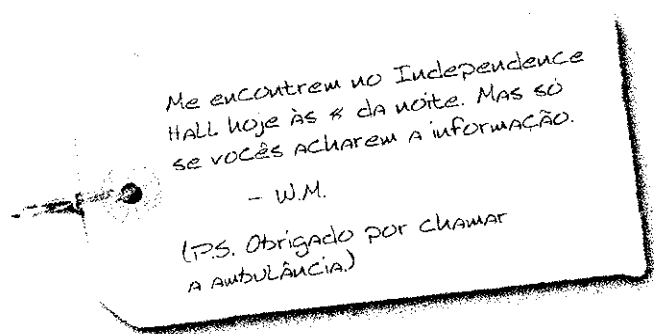 Me encontrem no Independence
Hall hoje às 8 da noite. Mas só
se vocês acharem a informação.
– W.M.
(P.S. Obrigado por chamar
a ambulância.)